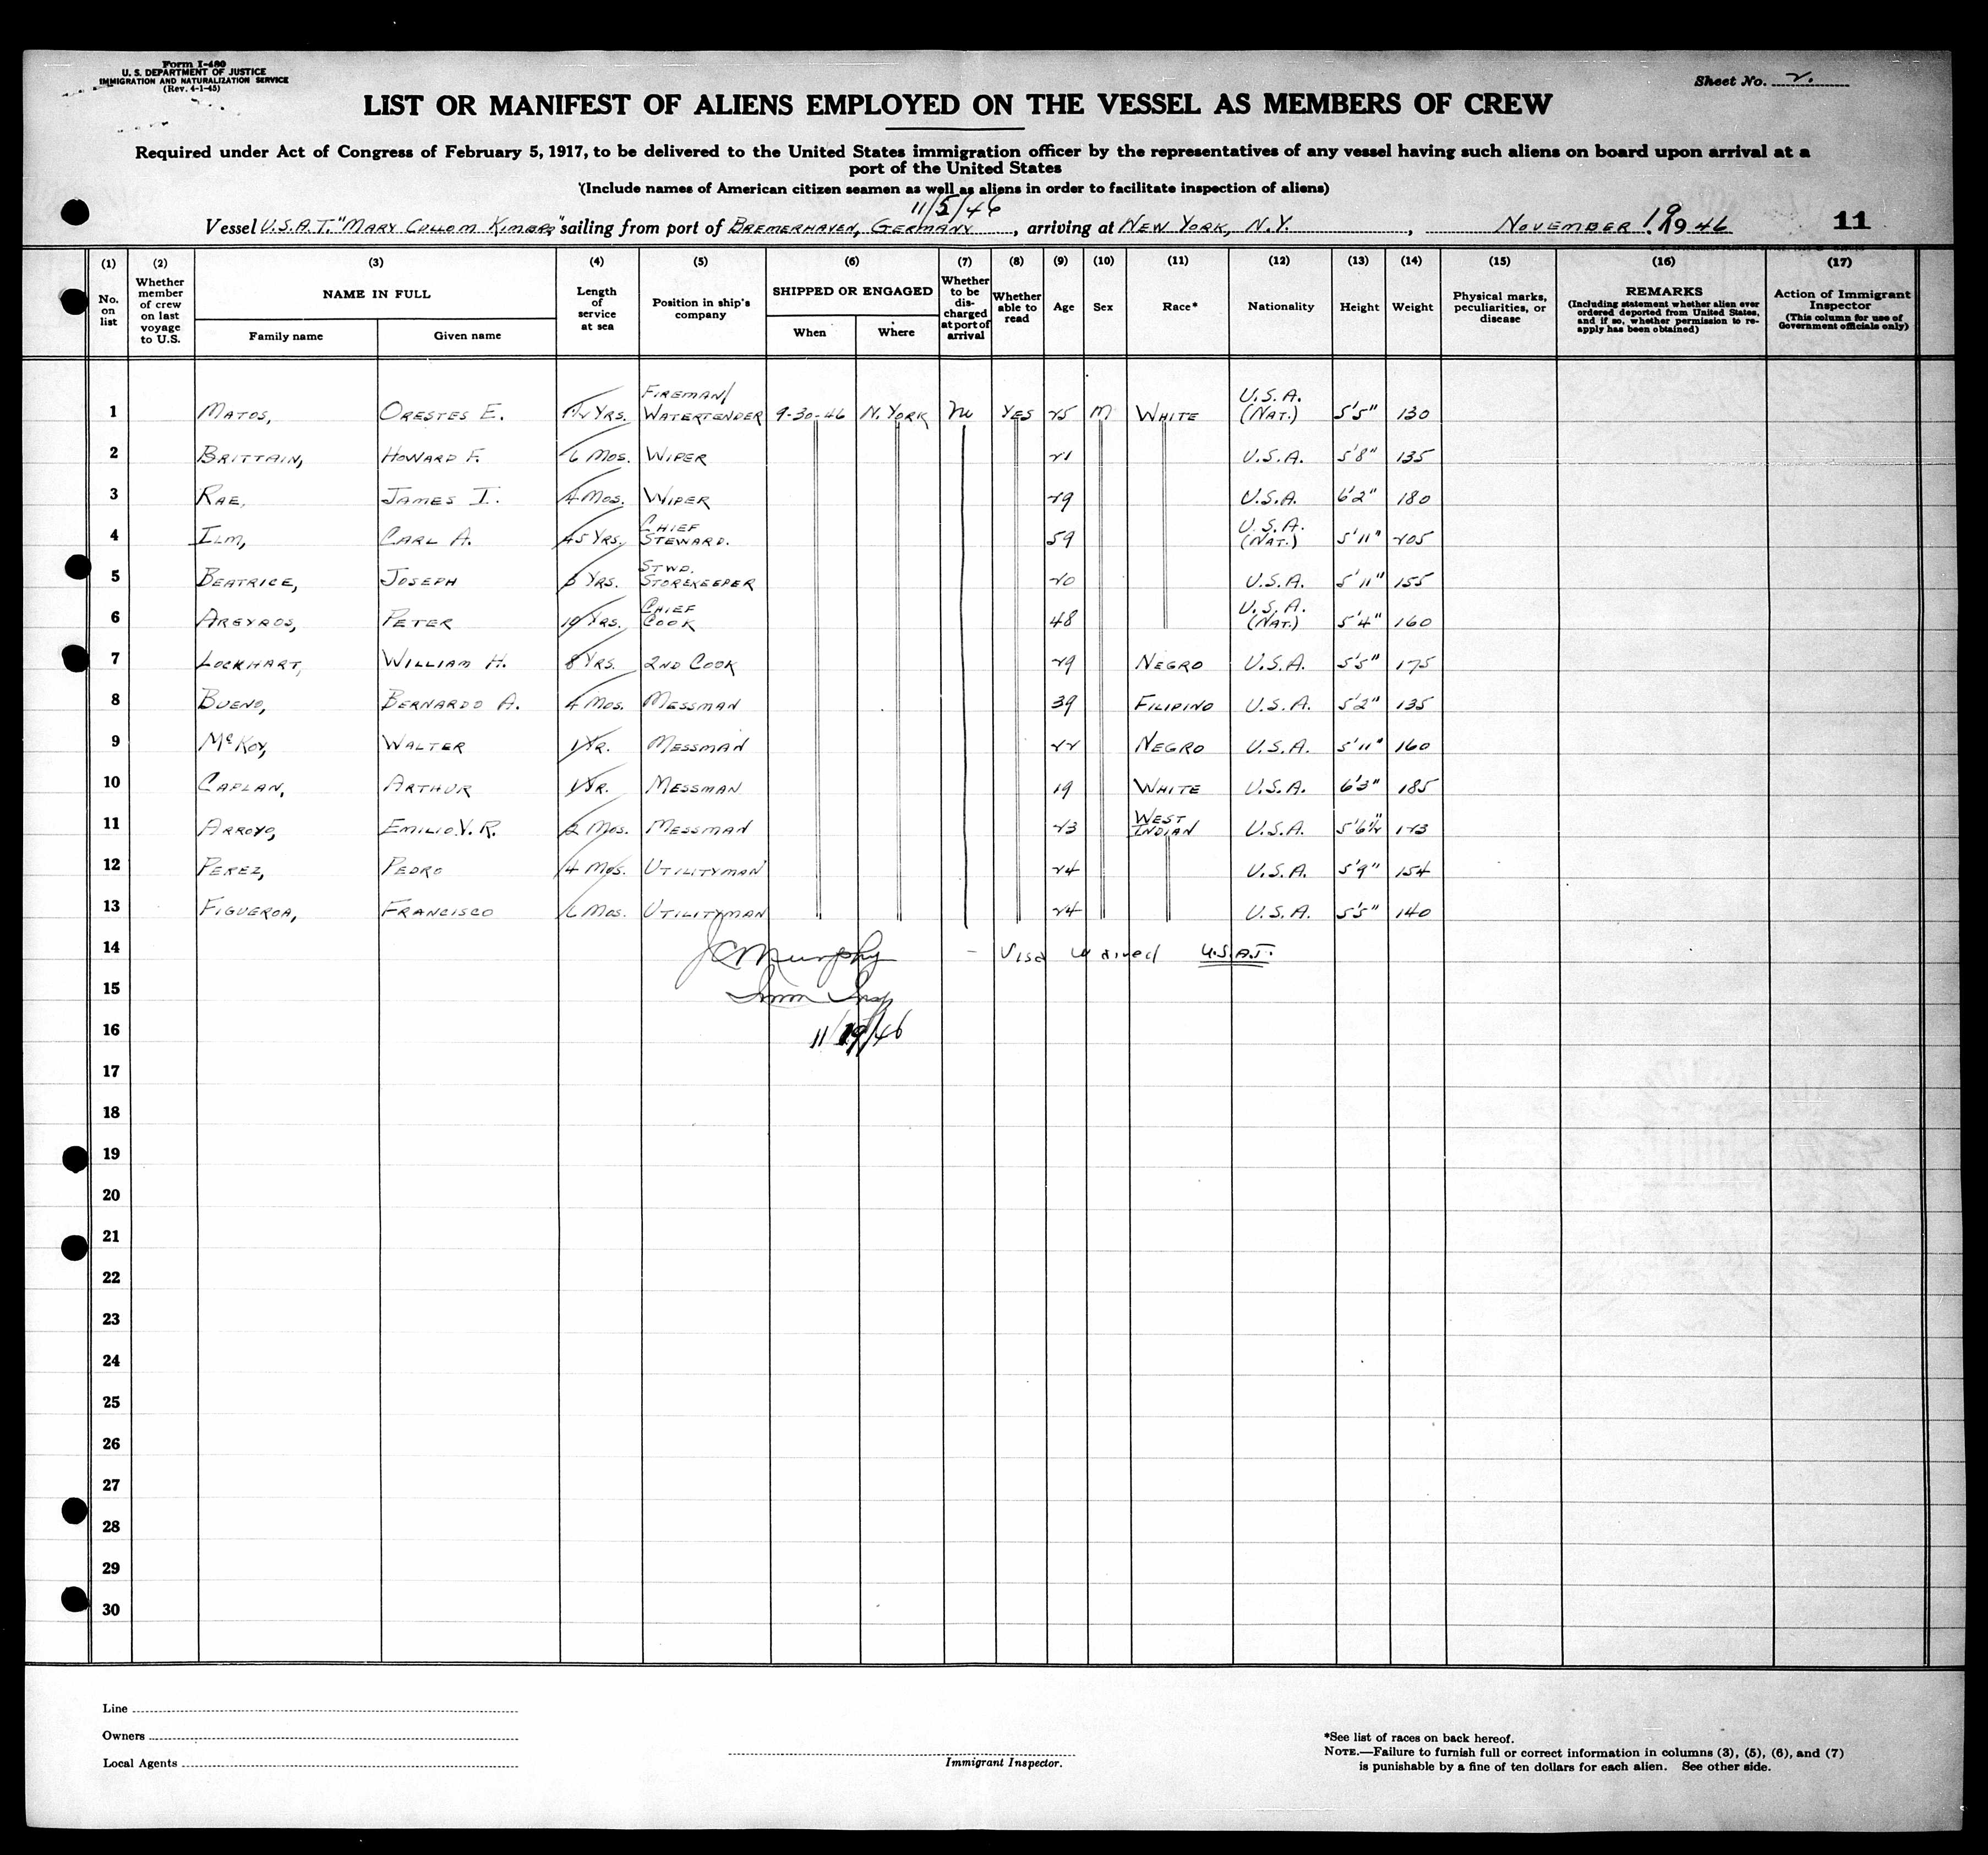 Form I-480
U. S. DEPARTMENT OF JUSTICE
IMMIGRATION AND NATURALIZATION SERVICE
(Rev. 4-1-45)
Sheet No. 2.
LIST OR MANIFEST OF ALIENS EMPLOYED ON THE VESSEL AS MEMBERS OF CREW
Required under Act of Congress of February 5, 1917, to be delivered to the United States immigration officer by the representatives of any vessel having such aliens on board upon arrival at a
port of the United States
(Include names of American citizen seamen as well as aliens in order to facilitate inspection of aliens)
11/5/46
Vessel U.S.A.T. "MARY CULLOM KIMBRO" sailing from port of BREMERHAVEN, GERMANY, arriving at NEW YORK, N.Y., NOVEMBER 19, 1946 11
(1) (2) (3) (4) (5) (6) (7) (8) (9) (10) (11) (12) (13) (14) (15) (16) (17)
No. on list
Whether member of crew on last voyage to U.S.
NAME IN FULL
Family name Given name
Length of service at sea
Position in ship's company
SHIPPED OR ENGAGED
When Where
Whether to be discharged at port of arrival
Whether able to read
Age
Sex
Race*
Nationality
Height
Weight
Physical marks, peculiarities, or disease
REMARKS
(Including statement whether alien ever ordered deported from United States, and if so, whether permission to reapply has been obtained)
Action of Immigrant Inspector
(This column for use of Government officials only)
1 MATOS, ORESTES E. 1½ YRS. FIREMAN/ WATERTENDER 9-30-46 N. YORK No YES 25 M WHITE U.S.A. (NAT.) 5'5" 130
2 BRITTAIN, HOWARD F. 6 MOS. WIPER 21 U.S.A. 5'8" 135
3 RAE, JAMES I. 4 MOS. WIPER 29 U.S.A. 6'2" 180
4 ILM, CARL A. 45 YRS. CHIEF STEWARD. 59 U.S.A. (NAT.) 5'11" 205
5 BEATRICE, JOSEPH 3 YRS. STWD. STOREKEEPER 20 U.S.A. 5'11" 155
6 ARGYROS, PETER 19 YRS. CHIEF COOK 48 U.S.A. (NAT.) 5'4" 160
7 LOCKHART, WILLIAM H. 8 YRS. 2ND COOK 29 NEGRO U.S.A. 5'5" 175
8 BUENO, BERNARDO A. 4 MOS. MESSMAN 39 FILIPINO U.S.A. 5'2" 135
9 McKOY, WALTER 1 YR. MESSMAN 22 NEGRO U.S.A. 5'11" 160
10 CAPLAN, ARTHUR 1 YR. MESSMAN 19 WHITE U.S.A. 6'3" 185
11 ARROYO, EMILIO V. R. 2 MOS. MESSMAN 23 WEST INDIAN U.S.A. 5'6½" 123
12 PEREZ, PEDRO 4 MOS. UTILITYMAN 24 U.S.A. 5'9" 154
13 FIGUEROA, FRANCISCO 6 MOS. UTILITYMAN 24 U.S.A. 5'5" 140
14 JC Murphy - Visa waived U.S.A.T.
15 Imm Insp
16 11/19/46
17
18
19
20
21
22
23
24
25
26
27
28
29
30
Line
Owners
Local Agents
Immigrant Inspector.
*See list of races on back hereof.
NOTE.—Failure to furnish full or correct information in columns (3), (5), (6), and (7)
is punishable by a fine of ten dollars for each alien. See other side.